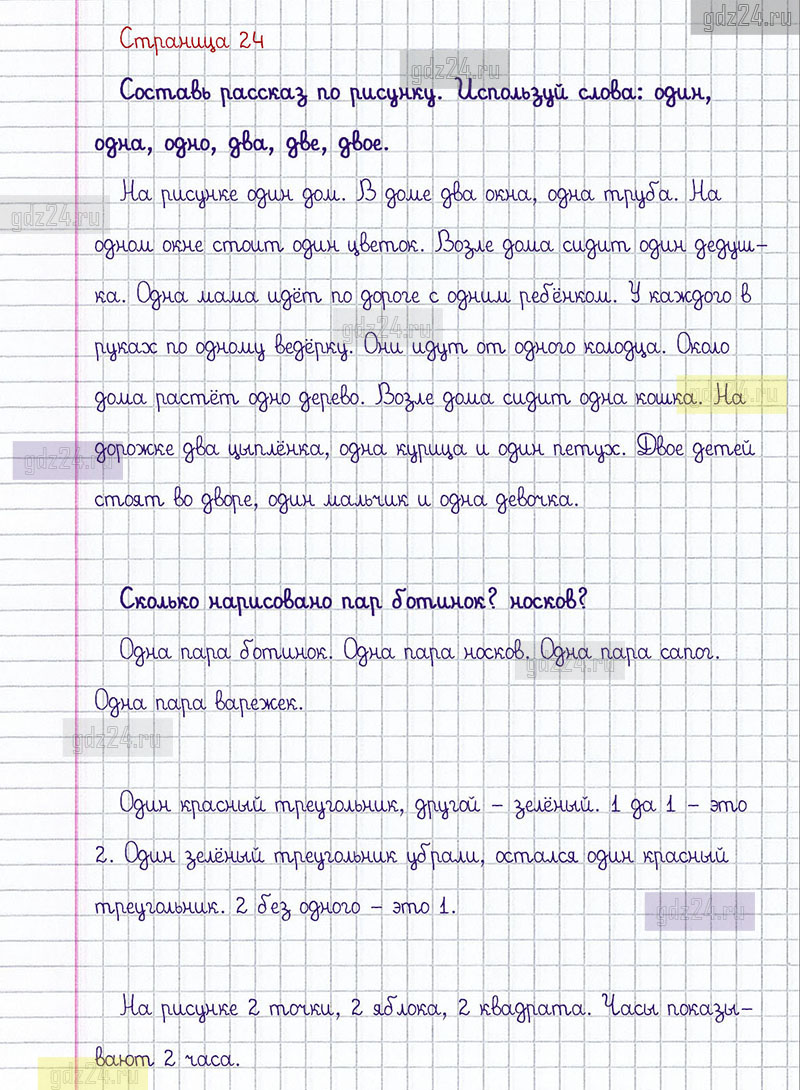 gdz24.ru
Страница 24
gdz24.ru
Составь рассказ по рисунку. Используй слова: один,
одна, одно, два, две, двое.
На рисунке один дом. В доме два окна, одна труба. На
gdz24.ru
одном окне стоит один цветок. Возле дома сидит один дедуш-
ка. Одна мама идёт по дороге с одним ребёнком. У каждого в
gdz24.ru
руках по одному ведёрку. Они идут от одного колодца. Около
gdz24.ru
дома растёт одно дерево. Возле дома сидит одна кошка. На
gdz24.ru
дорожке два цыплёнка, одна курица и один петух. Двое детей
стоят во дворе, один мальчик и одна девочка.
Сколько нарисовано пар ботинок? носков?
Одна пара ботинок. Одна пара носков. Одна пара сапог.
gdz24.ru
Одна пара варежек.
gdz24.ru
Один красный треугольник, другой – зелёный. 1 да 1 – это
2. Один зелёный треугольник убрали, остался один красный
треугольник. 2 без одного – это 1.
gdz24.ru
На рисунке 2 точки, 2 яблока, 2 квадрата. Часы показы-
вают 2 часа.
gdz24.ru